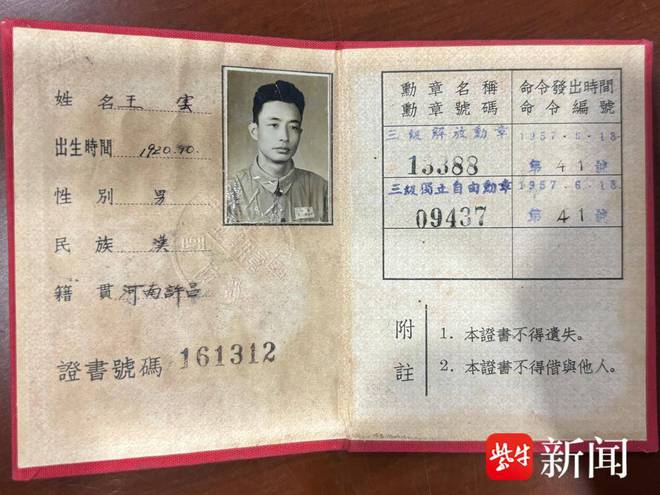 姓 名 王 雲
出生時間 1920.10.
性 別 男
民 族 漢
籍 貫 河南許昌
證書號碼 161312
勳章名稱 命令發出時間
勳章號碼 命令編號
三級解放勳章 1957.6.18
13388 第41號
三級獨立自由勳章 1957.6.18
09437 第41號
附註
1. 本證書不得遺失。
2. 本證書不得借與他人。
紫牛新闻